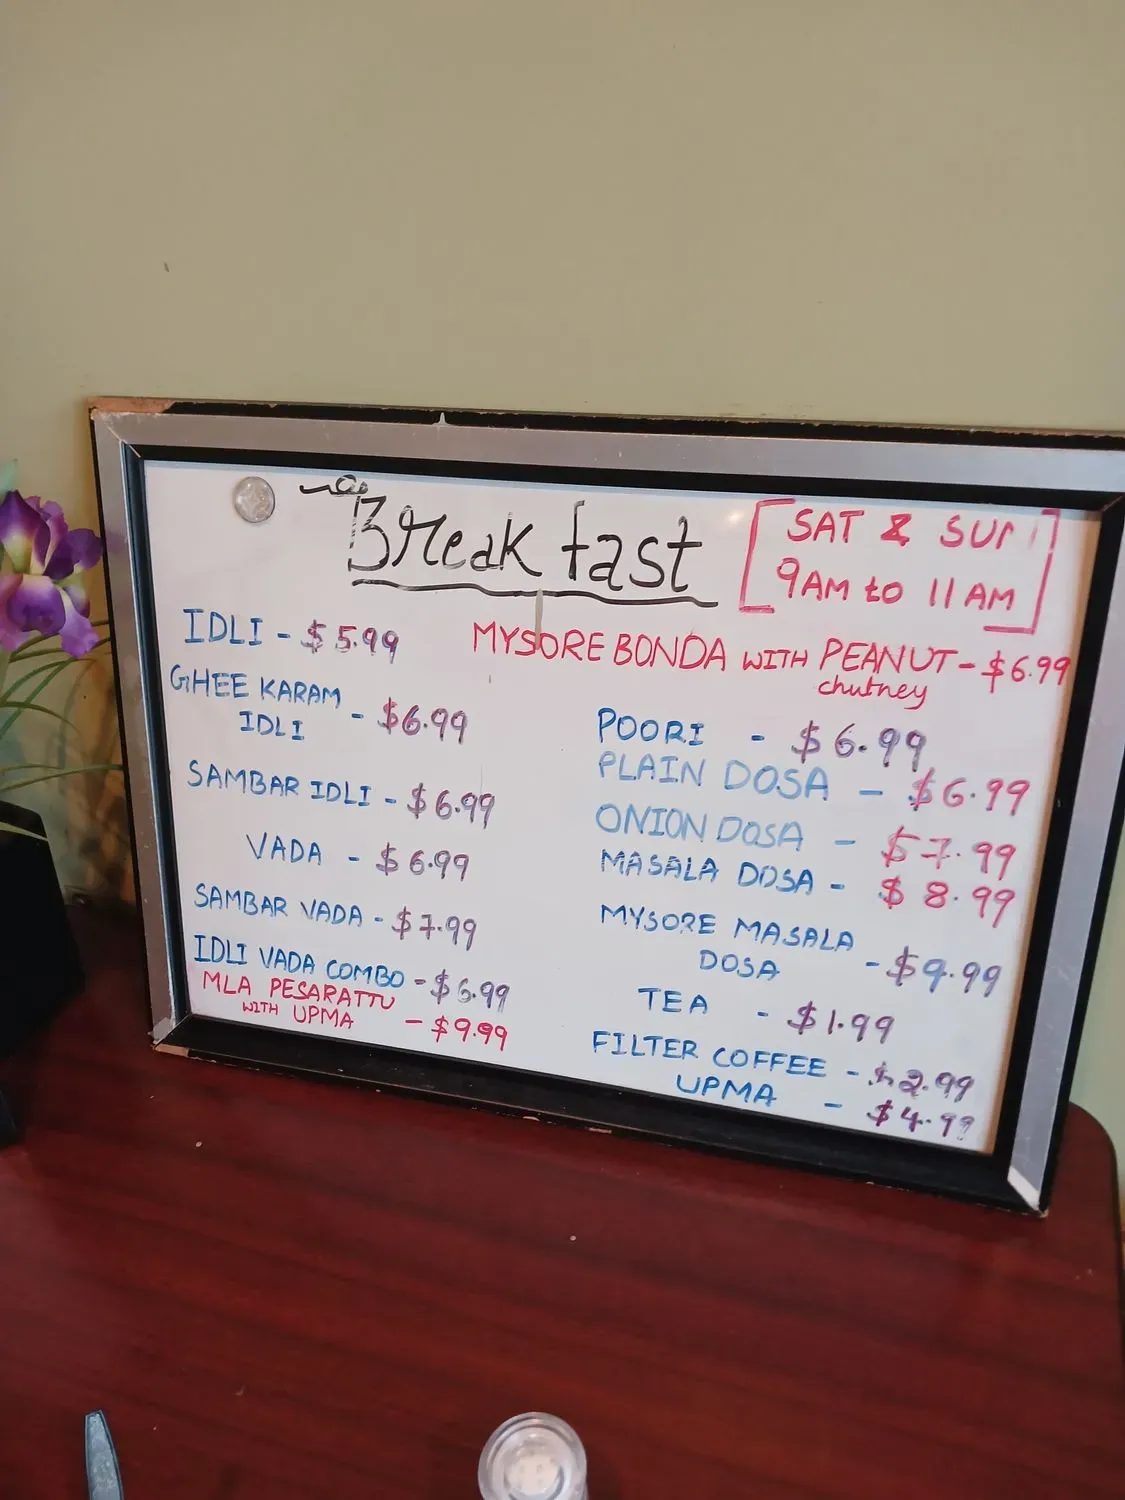 Breakfast
[SAT & SUN]
9AM to 11AM
IDLI - $5.99
GHEE KARAM
IDLI - $6.99
SAMBAR IDLI - $6.99
VADA - $6.99
SAMBAR VADA - $7.99
IDLI VADA COMBO - $6.99
MLA PESARATTU
WITH UPMA - $9.99
MYSORE BONDA WITH PEANUT - $6.99
chutney
POORI - $6.99
PLAIN DOSA - $6.99
ONION DOSA - $7.99
MASALA DOSA - $8.99
MYSORE MASALA
DOSA - $9.99
TEA - $1.99
FILTER COFFEE - $2.99
UPMA - $4.99